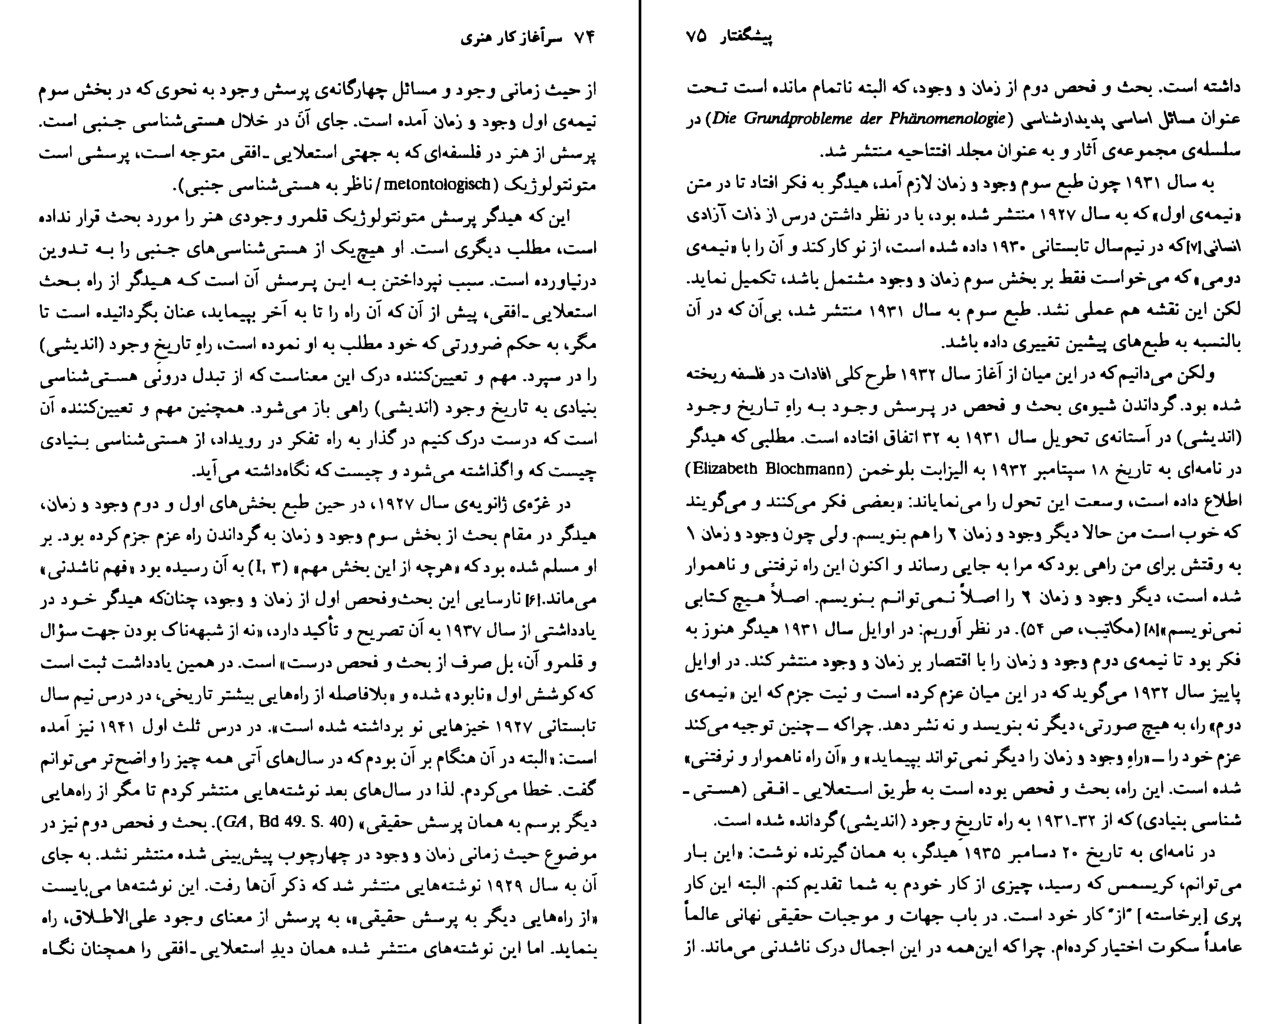 ۷۴ سرآغاز کار هنری
از حیث زمانی وجود و مسائل چهارگانه‌ی پرسش وجود به نحوی که در بخش سوم
نیمه‌ی اول وجود و زمان آمده است. جای آن در خلال هستی‌شناسی جنبی است.
پرسش از هنر در فلسفه‌ای که به جهتی استعلایی ـ افقی متوجه است، پرسشی است
متونتولوژیک (metontologisch/ناظر به هستی‌شناسی جنبی).
این که هیدگر پرسش متونتولوژیک قلمرو وجودی هنر را مورد بحث قرار نداده
است، مطلب دیگری است. او هیچ‌یک از هستی‌شناسی‌های جنبی را به تدوین
درنیاورده است. سبب نپرداختن به این پرسش آن است که هیدگر از راه بحث
استعلایی ـ افقی، پیش از آن که آن راه را تا به آخر بپیماید، عنان بگردانیده است تا
مگر، به حکم ضرورتی که خود مطلب به او نموده است، راهِ تاریخِ وجود (اندیشی)
را در سپرد. مهم و تعیین‌کننده درک این معناست که از تبدل درونی هستی‌شناسی
بنیادی به تاریخ وجود (اندیشی) راهی باز می‌شود. همچنین مهم و تعیین‌کننده آن
است که درست درک کنیم در گذار به راه تفکر در رویداد، از هستی‌شناسی بنیادی
چیست که واگذاشته می‌شود و چیست که نگاه‌داشته می‌آید.
در غرّه‌ی ژانویه‌ی سال ۱۹۲۷، در حین طبع بخش‌های اول و دوم وجود و زمان،
هیدگر در مقام بحث از بخش سوم وجود و زمان به گرداندن راه عزم جزم کرده بود. بر
او مسلم شده بود که «هرچه از این بخش مهم» (I, ۳) به آن رسیده بود «فهم ناشدنی»
می‌ماند.[۶] نارسایی این بحث‌وفحص اول از زمان و وجود، چنان‌که هیدگر خود در
یادداشتی از سال ۱۹۳۷ به آن تصریح و تأکید دارد، «نه از شبهه‌ناک بودن جهت سؤال
و قلمرو آن، بل صرف از بحث و فحص درست» است. در همین یادداشت ثبت است
که کوشش اول «نابود» شده و «بلافاصله از راه‌هایی بیشتر تاریخی، در درس نیم سال
تابستانی ۱۹۲۷ خیزهایی نو برداشته شده است». در درس ثلث اول ۱۹۴۱ نیز آمده
است: «البته در آن هنگام بر آن بودم که در سال‌های آتی همه چیز را واضح‌تر می‌توانم
گفت. خطا می‌کردم. لذا در سال‌های بعد نوشته‌هایی منتشر کردم تا مگر از راه‌هایی
دیگر برسم به همان پرسش حقیقی» (GA, Bd 49. S. 40). بحث و فحص دوم نیز در
موضوع حیث زمانی زمان و وجود در چهارچوب پیش‌بینی شده منتشر نشد. به جای
آن به سال ۱۹۲۹ نوشته‌هایی منتشر شد که ذکر آن‌ها رفت. این نوشته‌ها می‌بایست
«از راه‌هایی دیگر به پرسش حقیقی»، به پرسش از معنای وجود علی‌الاطلاق، راه
بنماید. اما این نوشته‌های منتشر شده همان دیدِ استعلایی ـ افقی را همچنان نگاه
پیشگفتار ۷۵
داشته است. بحث و فحص دوم از زمان و وجود، که البته ناتمام مانده است تحت
عنوان مسائل اساسی پدیدارشناسی (Die Grundprobleme der Phänomenologie) در
سلسله‌ی مجموعه‌ی آثار و به عنوان مجلد افتتاحیه منتشر شد.
به سال ۱۹۳۱ چون طبع سوم وجود و زمان لازم آمد، هیدگر به فکر افتاد تا در متن
«نیمه‌ی اول» که به سال ۱۹۲۷ منتشر شده بود، با در نظر داشتن درس از ذات آزادی
انسانی[۷] که در نیم‌سال تابستانی ۱۹۳۰ داده شده است، از نو کار کند و آن را با «نیمه‌ی
دومی» که می‌خواست فقط بر بخش سوم زمان و وجود مشتمل باشد، تکمیل نماید.
لکن این نقشه هم عملی نشد. طبع سوم به سال ۱۹۳۱ منتشر شد، بی‌آن که در آن
بالنسبه به طبع‌های پیشین تغییری داده باشد.
ولکن می‌دانیم که در این میان از آغاز سال ۱۹۳۲ طرح کلی افادات در فلسفه ریخته
شده بود. گرداندن شیوه‌ی بحث و فحص در پرسش وجود به راهِ تاریخ وجود
(اندیشی) در آستانه‌ی تحویل سال ۱۹۳۱ به ۳۲ اتفاق افتاده است. مطلبی که هیدگر
در نامه‌ای به تاریخ ۱۸ سپتامبر ۱۹۳۲ به الیزابت بلوخمن (Elizabeth Blochmann)
اطلاع داده است، وسعت این تحول را می‌نمایاند: «بعضی فکر می‌کنند و می‌گویند
که خوب است من حالا دیگر وجود و زمان ۲ را هم بنویسم. ولی چون وجود و زمان ۱
به وقتش برای من راهی بود که مرا به جایی رساند و اکنون این راه نرفتنی و ناهموار
شده است، دیگر وجود و زمان ۲ را اصلاً نمی‌توانم بنویسم. اصلاً هیچ کتابی
نمی‌نویسم»[۸] (مکاتیب، ص ۵۴). در نظر آوریم: در اوایل سال ۱۹۳۱ هیدگر هنوز به
فکر بود تا نیمه‌ی دوم وجود و زمان را با اقتصار بر زمان و وجود منتشر کند. در اوایل
پاییز سال ۱۹۳۲ می‌گوید که در این میان عزم کرده است و نیت جزم که این «نیمه‌ی
دوم» را، به هیچ صورتی، دیگر نه بنویسد و نه نشر دهد. چراکه ـ چنین توجیه می‌کند
عزم خود را ـ «راهِ وجود و زمان را دیگر نمی‌تواند بپیماید» و «آن راه ناهموار و نرفتنی»
شده است. این راه، بحث و فحص بوده است به طریق استعلایی ـ افقی (هستی ـ
شناسی بنیادی) که از ۳۲ـ۱۹۳۱ به راه تاریخِ وجود (اندیشی) گردانده شده است.
در نامه‌ای به تاریخ ۲۰ دسامبر ۱۹۳۵ هیدگر، به همان گیرنده نوشت: «این بار
می‌توانم، کریسمس که رسید، چیزی از کار خودم به شما تقدیم کنم. البته این کار
پری [برخاسته] "از" کار خود است. در باب جهات و موجبات حقیقی نهانی عالماً
عامداً سکوت اختیار کرده‌ام. چراکه این‌همه در این اجمال درک ناشدنی می‌ماند. از